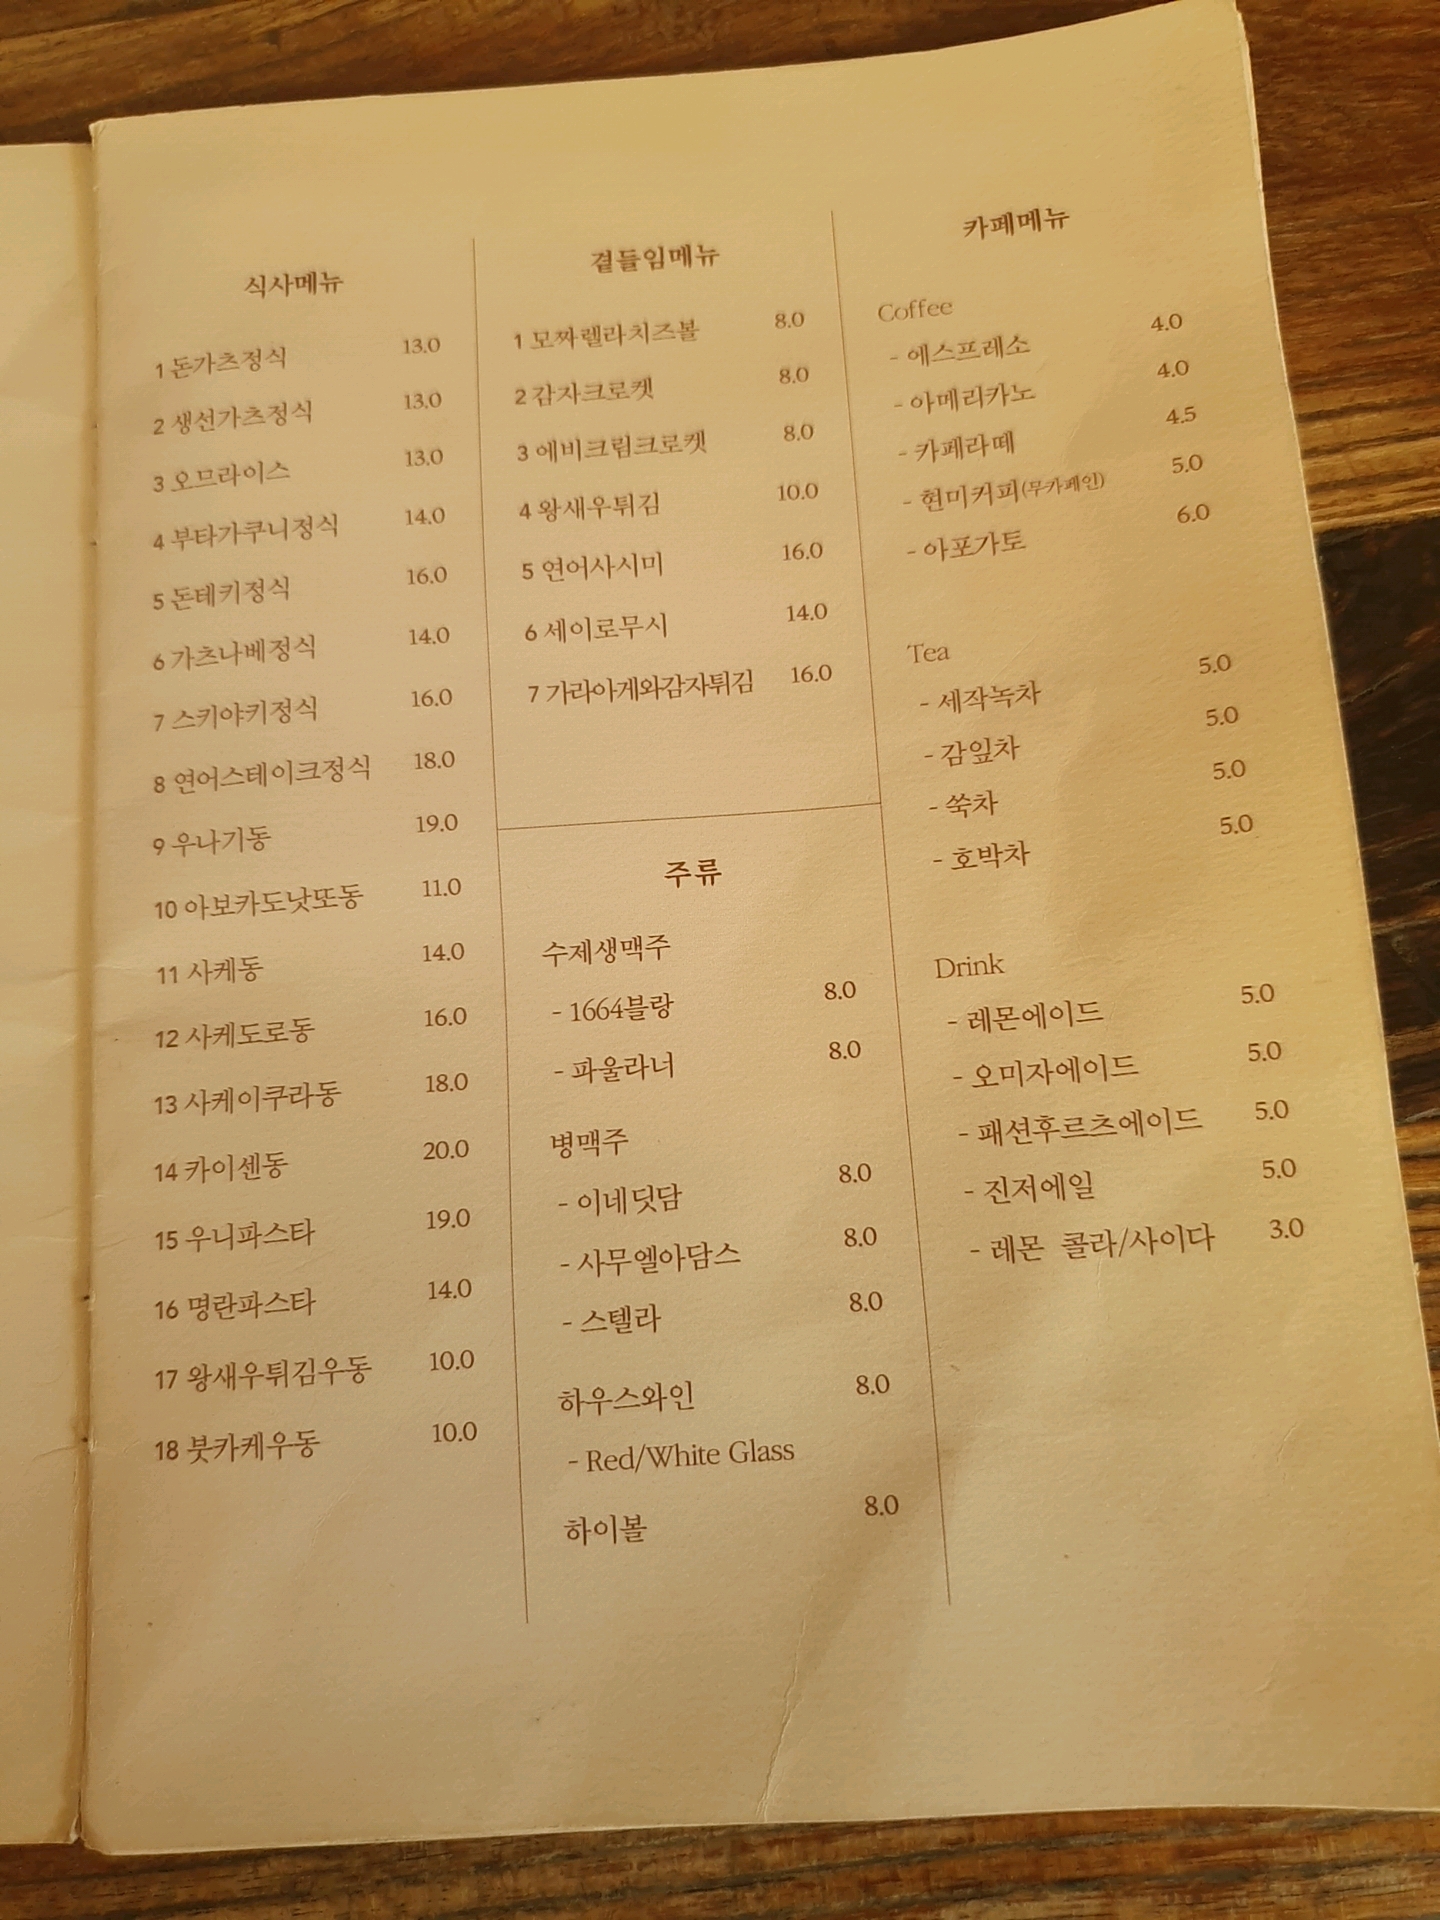 식사메뉴
1 돈가츠정식 13.0
2 생선가츠정식 13.0
3 오므라이스 13.0
4 부타가쿠니정식 14.0
5 돈테키정식 16.0
6 가츠나베정식 14.0
7 스키야키정식 16.0
8 연어스테이크정식 18.0
9 우나기동 19.0
10 아보카도낫또동 11.0
11 사케동 14.0
12 사케도로동 16.0
13 사케이쿠라동 18.0
14 카이센동 20.0
15 우니파스타 19.0
16 명란파스타 14.0
17 왕새우튀김우동 10.0
18 붓카케우동 10.0
곁들임메뉴
1 모짜렐라치즈볼 8.0
2 감자크로켓 8.0
3 에비크림크로켓 8.0
4 왕새우튀김 10.0
5 연어사시미 16.0
6 세이로무시 14.0
7 가라아게와감자튀김 16.0
주류
수제생맥주
- 1664블랑 8.0
- 파울라너 8.0
병맥주
- 이네딧담 8.0
- 사무엘아담스 8.0
- 스텔라 8.0
하우스와인 8.0
- Red/White Glass
하이볼 8.0
카페메뉴
Coffee
- 에스프레소 4.0
- 아메리카노 4.0
- 카페라떼 4.5
- 현미커피(무카페인) 5.0
- 아포가토 6.0
Tea
- 세작녹차 5.0
- 감잎차 5.0
- 쑥차 5.0
- 호박차 5.0
Drink
- 레몬에이드 5.0
- 오미자에이드 5.0
- 패션후르츠에이드 5.0
- 진저에일 5.0
- 레몬 콜라/사이다 3.0